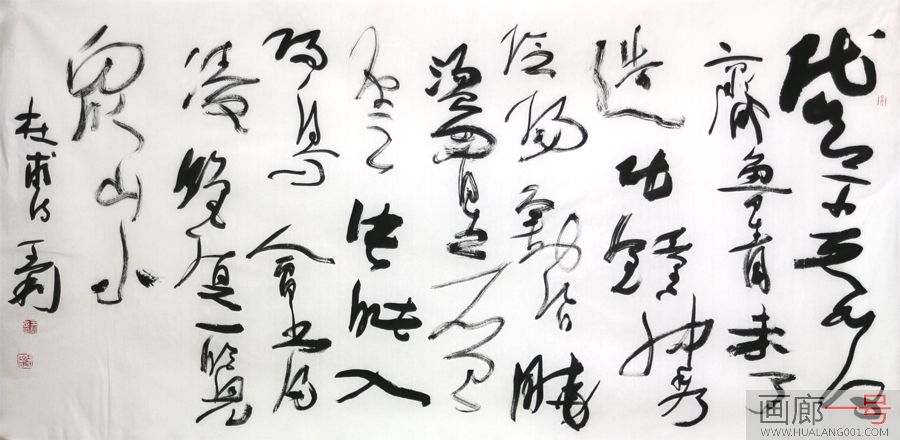 岱宗夫如何
齊魯青未了
造化鍾神秀
陰陽割昏曉
盪胸生層
雲決眥入
歸鳥會當
凌絕頂一覽
眾山小
杜甫诗
画廊一号
WWW.HUALANG001.COM